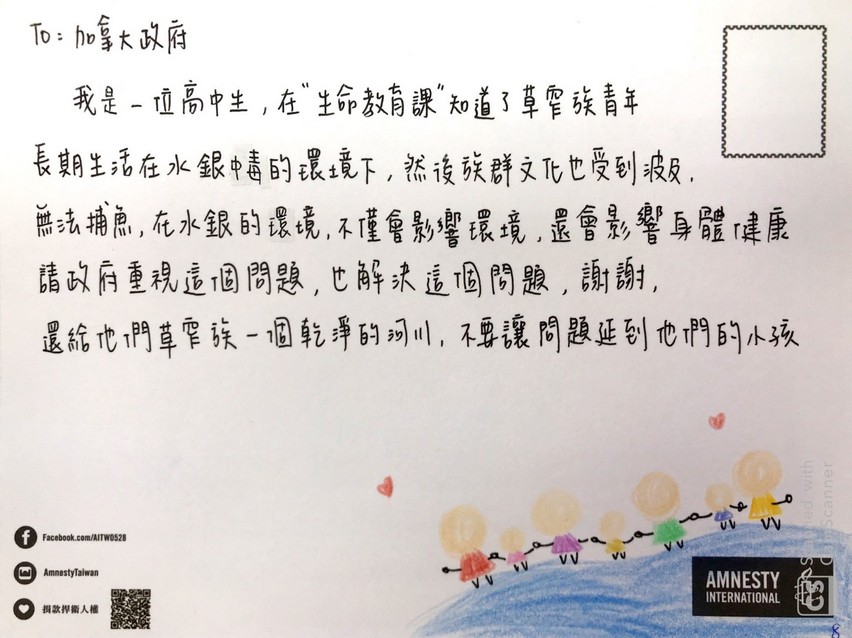 To: 加拿大政府
我是一位高中生, 在"生命教育課"知道了草窄族青年
長期生活在水銀中毒的環境下, 然後族群文化也受到波及.
無法捕魚, 在水銀的環境, 不僅會影響環境, 還會影響身體健康
請政府重視這個問題, 也解決這個問題, 謝謝.
還給他們草窄族一個乾淨的河川, 不要讓問題延到他們的小孩
Facebook.com/AITW0528
AmnestyTaiwan
捐款捍衛人權
AMNESTY
INTERNATIONAL
Scanned with
CS CamScanner
8